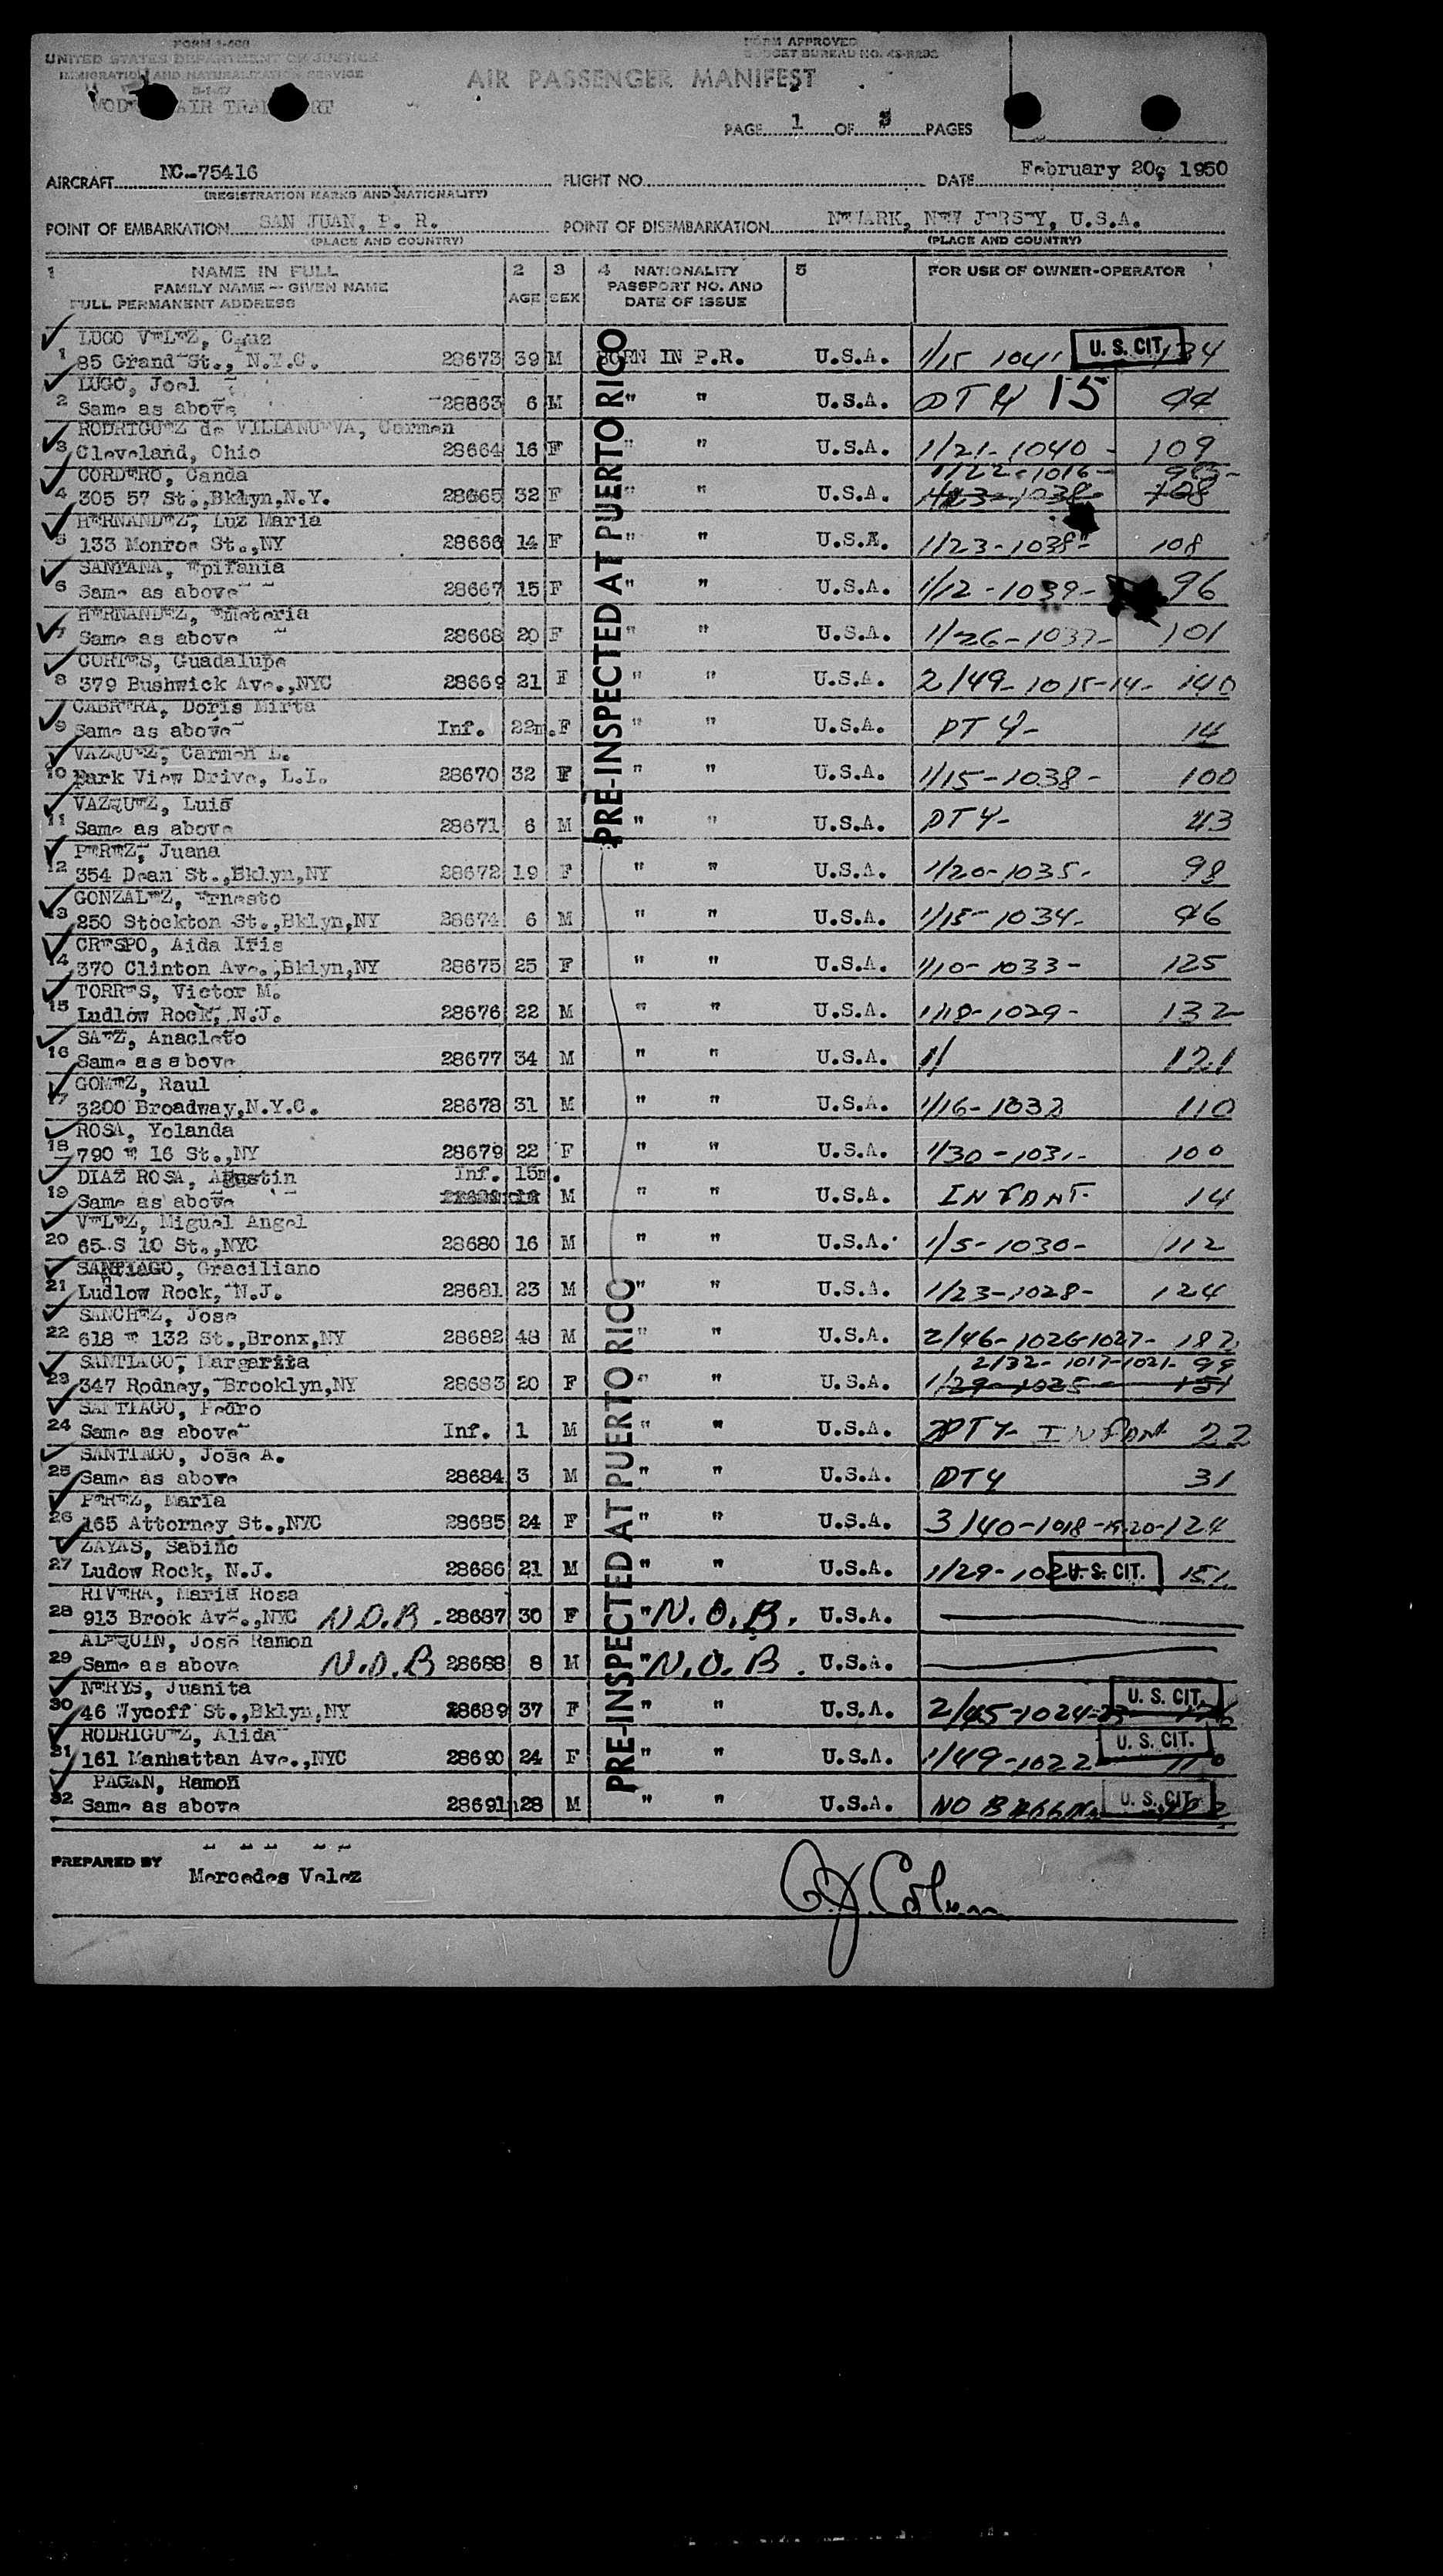 FORM I-466
UNITED STATES DEPARTMENT OF JUSTICE
IMMIGRATION AND NATURALIZATION SERVICE
FORM APPROVED
BUDGET BUREAU NO. 43-R232
AIR PASSENGER MANIFEST
AIR
PAGE 1 OF PAGES
AIRCRAFT NC-75416 FLIGHT NO. DATE February 20, 1950
(REGISTRATION MARKS AND NATIONALITY)
POINT OF EMBARKATION SAN JUAN, P. R. POINT OF DISEMBARKATION NEWARK, NEW JERSEY, U.S.A.
(PLACE AND COUNTRY) (PLACE AND COUNTRY)
1 NAME IN FULL 2 3 4 NATIONALITY 5 FOR USE OF OWNER-OPERATOR
FAMILY NAME — GIVEN NAME AGE SEX PASSPORT NO. AND
FULL PERMANENT ADDRESS DATE OF ISSUE
PRE-INSPECTED AT PUERTO RICO
LUGO VELEZ, Cruz
1 85 Grand St., N.Y.C. 28673 39 M BORN IN P.R. U.S.A. 1/15 1041 U. S. CIT. 134
LUGO, Joel
2 Same as above 28663 6 M " " U.S.A. PTY 15 44
RODRIGUEZ de VILLANUEVA, Carmen
3 Cleveland, Ohio 28664 16 F " " U.S.A. 1/21-1040 - 109
CORDERO, Canda 1/22-1016-
4 305 57 St.,Bklyn,N.Y. 28665 32 F " " U.S.A. 108
HERNANDEZ, Luz Maria
5 133 Monroe St.,NY 28666 14 F " " U.S.A. 1/23-1038- 108
SANTANA, Epifania
6 Same as above 28667 15 F " " U.S.A. 1/12-1039- 96
HERNANDEZ, Emeteria
7 Same as above 28668 20 F " " U.S.A. 1/26-1037- 101
CORTES, Guadalupe
8 379 Bushwick Ave.,NYC 28669 21 F " " U.S.A. 2/49-1015-14- 140
CABRERA, Doris Mirta
9 Same as above Inf. 22m. F " " U.S.A. PTY- 14
VAZQUEZ, Carmen L.
10 Park View Drive, L.I. 28670 32 F " " U.S.A. 1/15-1038- 100
VAZQUEZ, Luis
11 Same as above 28671 6 M " " U.S.A. PTY- 43
PEREZ, Juana
12 354 Dean St.,Bklyn,NY 28672 19 F " " U.S.A. 1/20-1035- 98
GONZALEZ, Ernesto
13 250 Stockton St.,Bklyn,NY 28674 6 M " " U.S.A. 1/15-1034- 46
CRESPO, Aida Iris
14 370 Clinton Ave.,Bklyn,NY 28675 25 F " " U.S.A. 1/10-1033- 125
TORRES, Victor M.
15 Ludlow Rock, N.J. 28676 22 M " " U.S.A. 1/18-1029- 132
SAEZ, Anacleto
16 Same as above 28677 34 M " " U.S.A. 1/ 121
GOMEZ, Raul
17 3200 Broadway,N.Y.C. 28678 31 M " " U.S.A. 1/16-1032 110
ROSA, Yolanda
18 790 E 16 St.,NY 28679 22 F " " U.S.A. 1/30-1031- 100
DIAZ ROSA, Agustin Inf. 15m.
19 Same as above M " " U.S.A. INFANT. 14
VELEZ, Miguel Angel
20 65 S 10 St.,NYC 28680 16 M " " U.S.A. 1/5-1030- 112
SANTIAGO, Graciliano
21 Ludlow Rock, N.J. 28681 23 M " " U.S.A. 1/23-1028- 124
PRE-INSPECTED AT PUERTO RICO
SANCHEZ, Jose
22 618 E 132 St.,Bronx,NY 28682 48 M " " U.S.A. 2/46-1026-1027- 187
SANTIAGO, Margarita 2/32-1017-1021- 99
23 347 Rodney, Brooklyn,NY 28683 20 F " " U.S.A. 1/29-1025- 151
SANTIAGO, Pedro
24 Same as above Inf. 1 M " " U.S.A. PTY- INFANT 22
SANTIAGO, Jose A.
25 Same as above 28684 3 M " " U.S.A. PTY 31
PEREZ, Maria
26 165 Attorney St.,NYC 28685 24 F " " U.S.A. 3/40-1018-19-20-124
ZAYAS, Sabino
27 Ludow Rock, N.J. 28686 21 M " " U.S.A. 1/29-102 U. S. CIT. 151
RIVERA, Maria Rosa
28 913 Brook Ave.,NYC N.O.B. 28687 30 F " N.O.B. U.S.A.
ALEQUIN, Jose Ramon
29 Same as above N.O.B 28688 8 M " N.O.B. U.S.A.
NERYS, Juanita
30 46 Wycoff St.,Bklyn,NY 28689 37 F " " U.S.A. 2/45-1024-23 U. S. CIT.
RODRIGUEZ, Alida
31 161 Manhattan Ave.,NYC 28690 24 F " " U.S.A. 1/49-1022 U. S. CIT. 110
PAGAN, Ramon
32 Same as above 28691 28 M " " U.S.A. NO U. S. CIT.
PREPARED BY Mercedes Velez